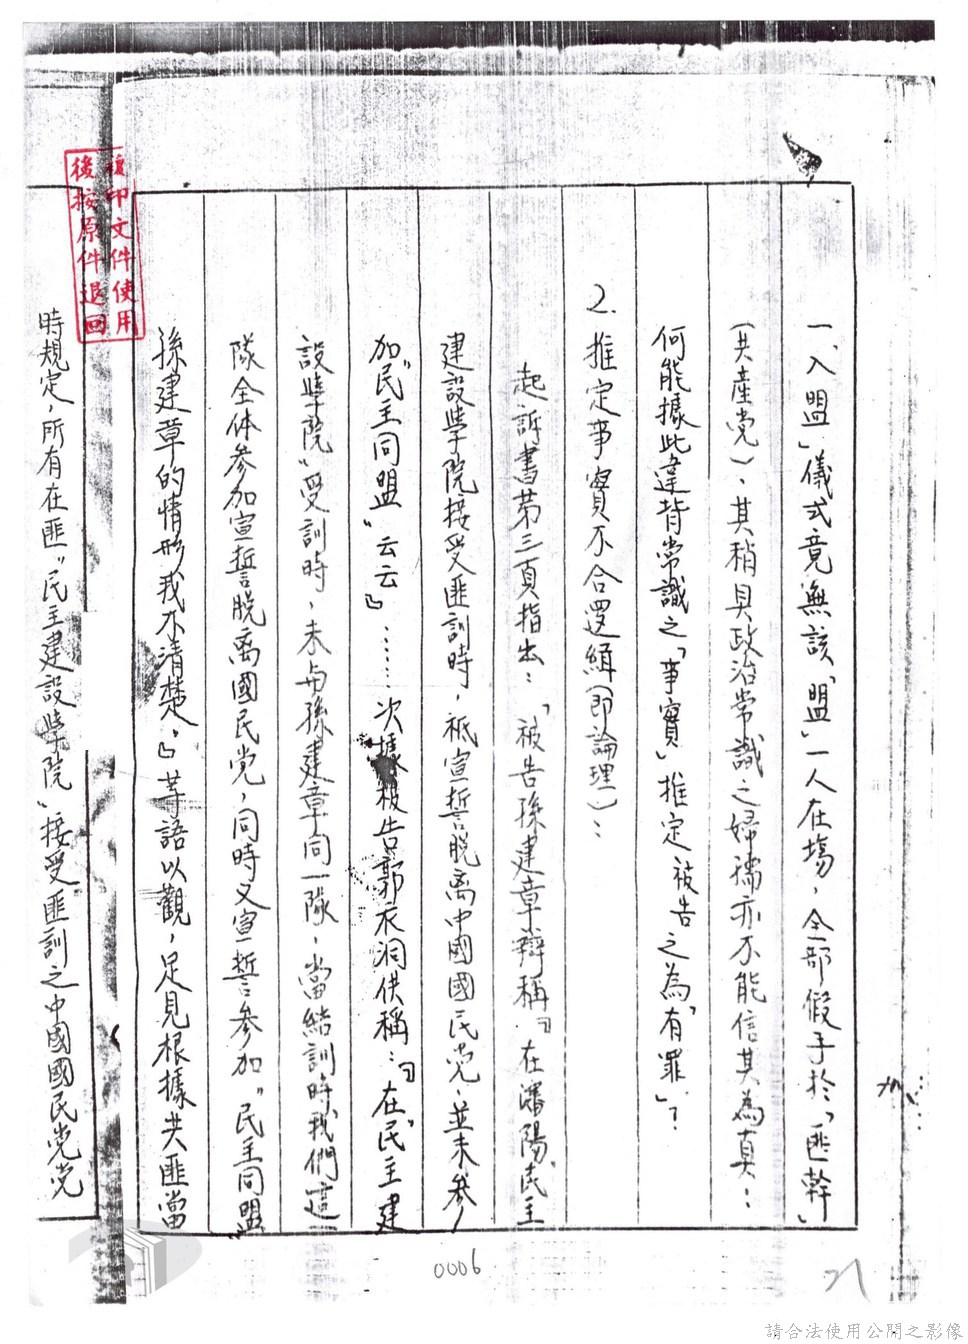 一、入盟」儀式竟無該「盟」一人在場，全部假手於「匪幹」
(共產党)、其稍具政治常識之婦孺亦不能信其為真：
何能據此違背常識之「事實」推定被告之為「有罪」？
2.推定事實不合邏緝(即論理)：
起訴書第三頁指出：「被告孫建章辯稱『在瀋陽民主
建設學院接受匪訓時，祇宣誓脫离中國國民党，並未參
加“民主同盟”云云』……次據被告郭衣洞供稱：『在“民主建
設學院”受訓時，未与孫建章同一隊，當結訓時我們這一
隊全体參加宣誓脫离國民党，同時又宣誓參加“民主同盟”
孫建章的情形我不清楚。』等語以觀，足見根據共匪當
時規定，所有在匪“民主建設學院”接受匪訓之中國國民党党
複印文件使用
後按原件退回
0006
21
請合法使用公開之影像